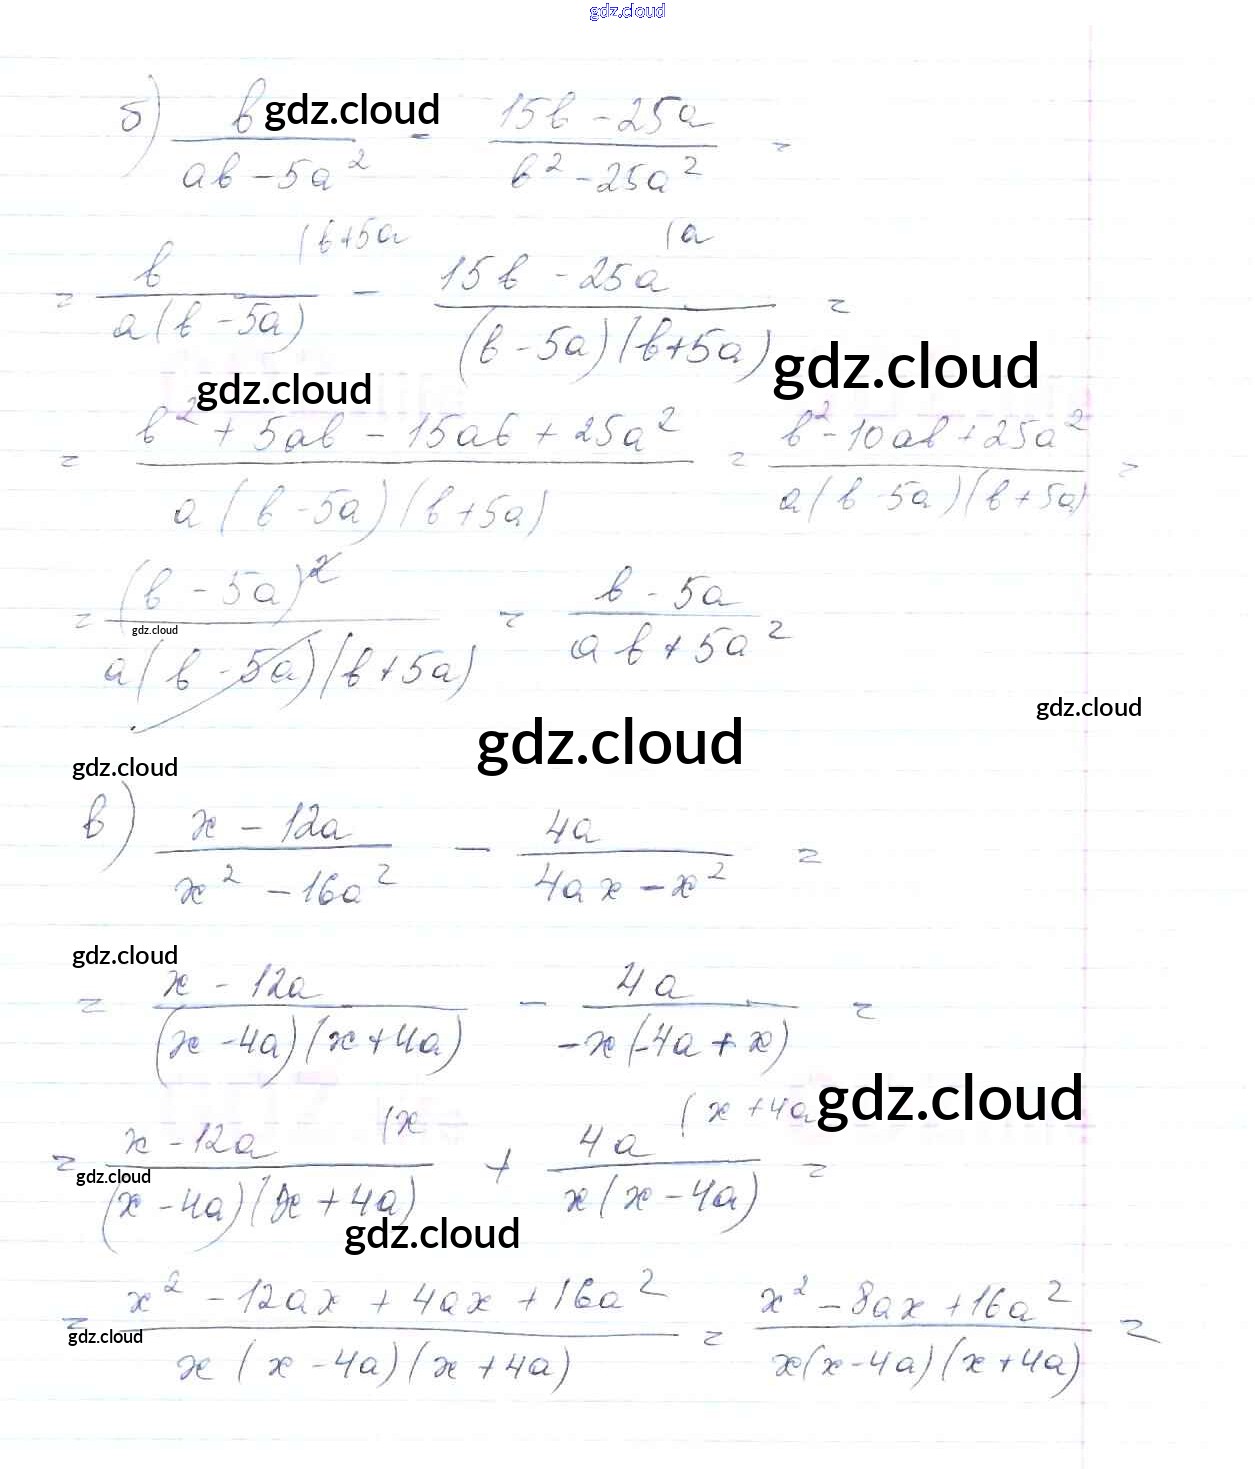 gdz.cloud
б) b/(ab - 5a²) - (15b - 25a)/(b² - 25a²) =
gdz.cloud
= b/(a(b - 5a)) (b+5a - (15b - 25a)/((b - 5a)(b+5a)) (a =
gdz.cloud
gdz.cloud
= (b² + 5ab - 15ab + 25a²)/(a(b - 5a)(b+5a)) = (b² - 10ab + 25a²)/(a(b - 5a)(b+5a)) =
= (b - 5a)²/(a(b - 5a)(b+5a)) = (b - 5a)/(ab + 5a²)
gdz.cloud
gdz.cloud
gdz.cloud
gdz.cloud
в) (x - 12a)/(x² - 16a²) - 4a/(4ax - x²) =
gdz.cloud
= (x - 12a)/((x - 4a)(x + 4a)) - 4a/(-x(-4a + x)) =
gdz.cloud
= (x - 12a)/((x - 4a)(x + 4a)) (x + 4a/(x(x - 4a)) (x + 4a =
gdz.cloud
gdz.cloud
= (x² - 12ax + 4ax + 16a²)/(x(x - 4a)(x + 4a)) = (x² - 8ax + 16a²)/(x(x - 4a)(x + 4a)) =
gdz.cloud